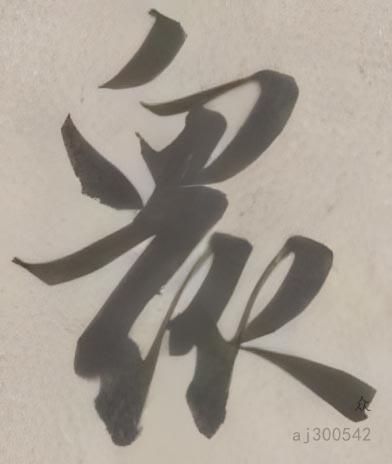 眾
众
aj300542